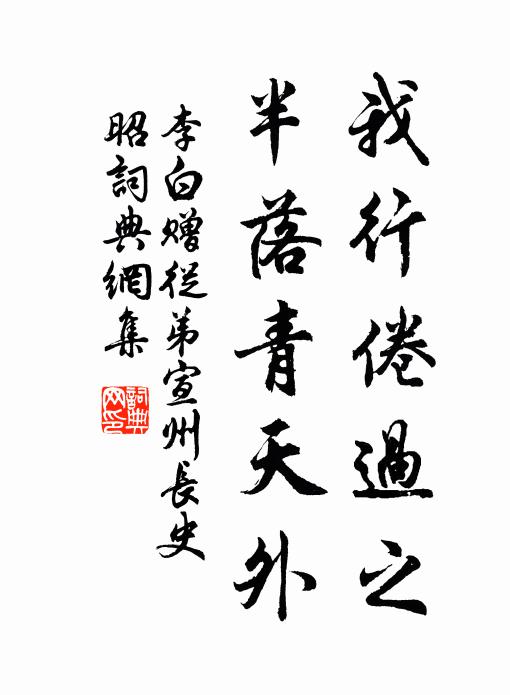 我行倦過之
半落青天外
李白赠從弟宣州長史
昭詞典網集
詞典
网印